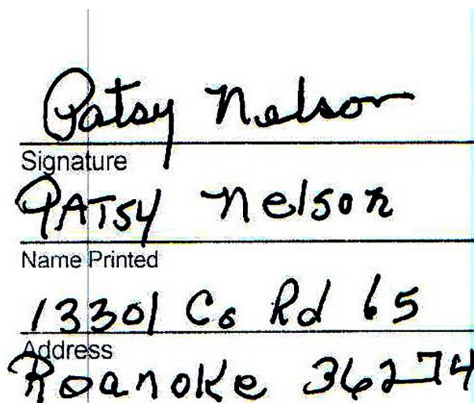 Patsy Nelson
Signature
PATSY Nelson
Name Printed
13301 Co Rd 65
Address
Roanoke 36274